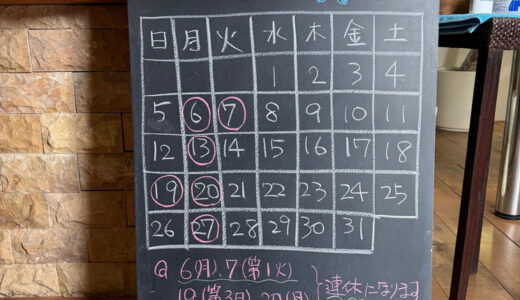 日 月 火 水 木 金 土
1 2 3 4
5 6 7 8 9 10 11
12 13 14 15 16 17 18
19 20 21 22 23 24 25
26 27 28 29 30 31
@ 6(月)、7(第1火)
19(第3日)、20(月)
連休になります